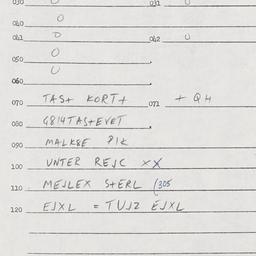 030 O 031 O
040 O
041 O 042 U
050 O
060 U
070 TAS+ KORT+ 071 + QH
080 G814TAS+EVET
090 MALK8E PIK
100 UNTER REJC XX
110 MEJLEX S+ERL (305
120 EJXL = TUJZ EJXL